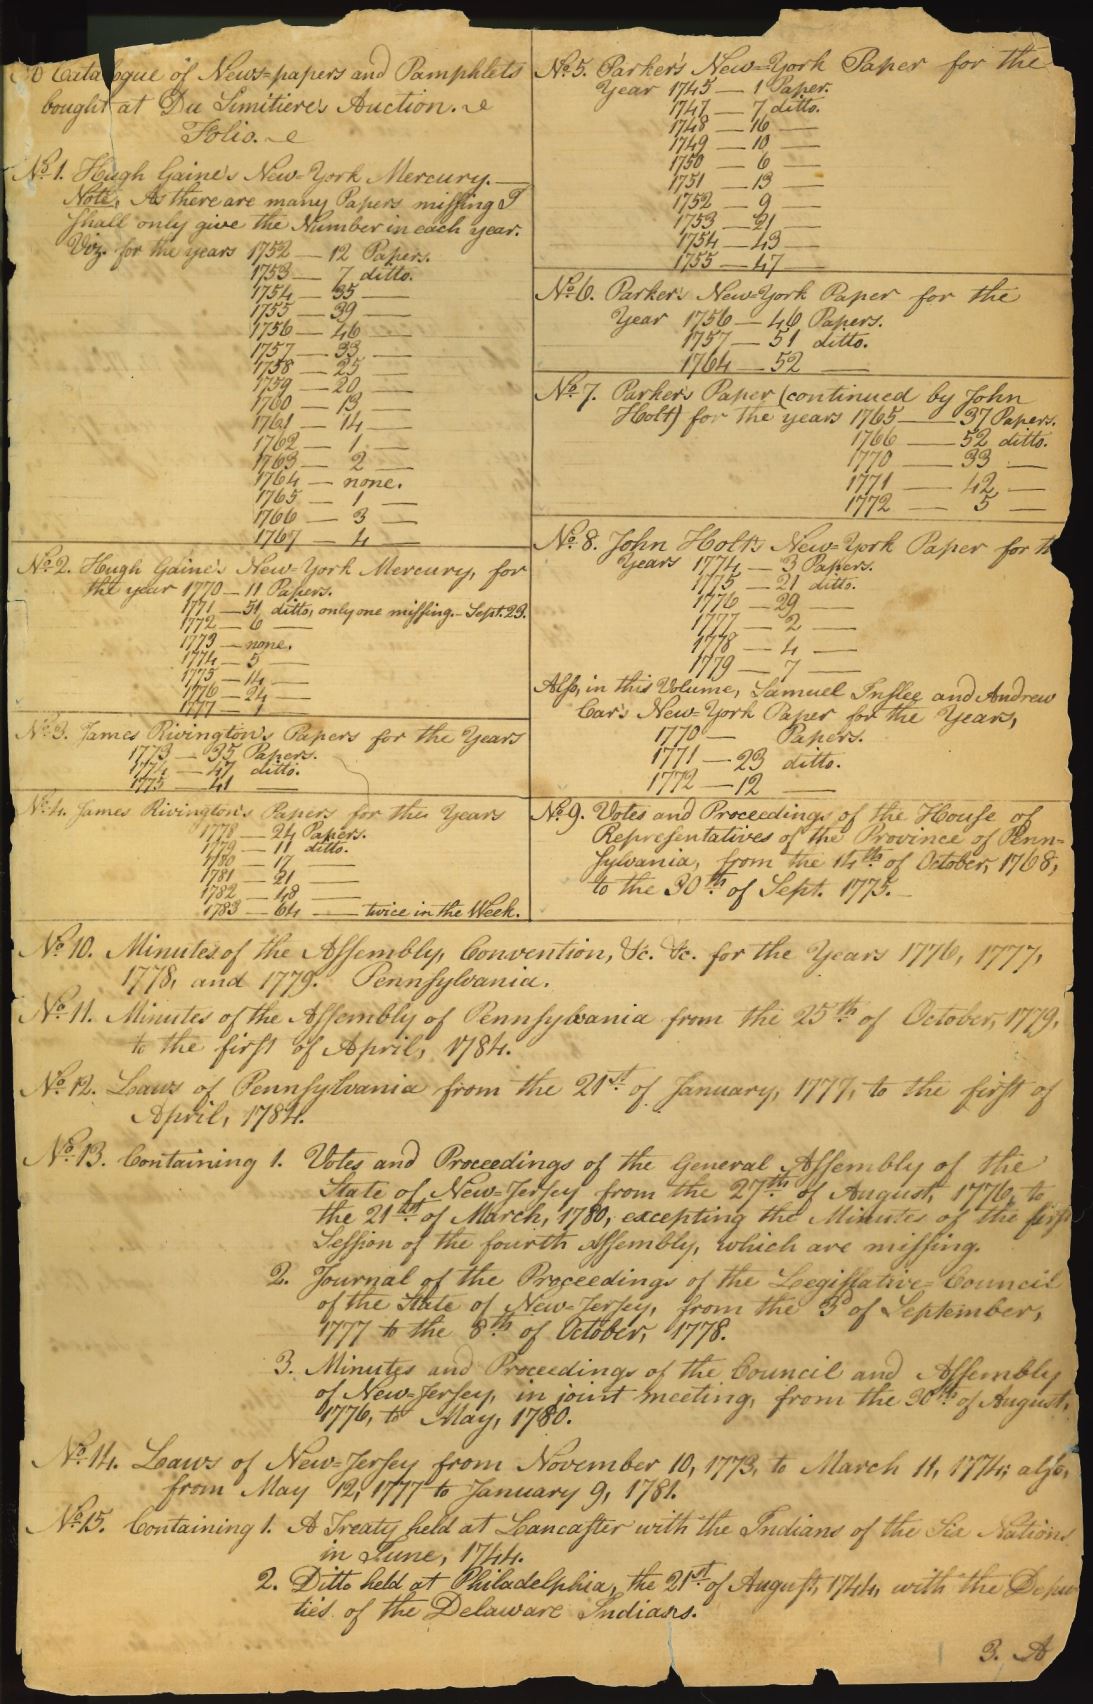 A Catalogue of News=papers and Pamphlets
bought at Du Simitiere's Auction.
Folio.
No. 1. Hugh Gaine's New=York Mercury.
Note, As there are many Papers missing I
shall only give the Number in each year.
Viz. for the years 1752 — 12 Papers.
1753 — 7 ditto.
1754 — 35 —
1755 — 39 —
1756 — 46 —
1757 — 33 —
1758 — 25 —
1759 — 20 —
1760 — 13 —
1761 — 14 —
1762 — 1 —
1763 — 2 —
1764 — none.
1765 — 1 —
1766 — 3 —
1767 — 4 —
No. 2. Hugh Gaine's New=York Mercury, for
the year 1770 — 11 Papers.
1771 — 51, ditto, only one missing. — Sept. 23.
1772 — 6 —
1773 — none.
1774 — 5 —
1775 — 14 —
1776 — 24 —
1777 — 1
No. 3. James Rivington's Papers for the Years
1773 — 35 Papers.
1774 — 47 ditto.
1775 — 41 —
No. 4. James Rivington's Papers for the Years
1778 — 24 Papers.
1779 — 11 ditto.
1780 — 17 —
1781 — 21 —
1782 — 48 —
1783 — 64 — twice in the Week.
No. 5. Parker's New=York Paper for the
Year 1745 — 1 Paper.
1747 — 7 ditto.
1748 — 16 —
1749 — 10 —
1750 — 6 —
1751 — 13 —
1752 — 9 —
1753 — 21 —
1754 — 43 —
1755 — 47 —
No. 6. Parker's New=York Paper for the
Year 1756 — 46 Papers.
1757 — 51 ditto.
1764 — 52 —
No. 7. Parker's Paper (continued by John
Holt) for the years 1765 — 37 Papers.
1766 — 52 ditto.
1770 — 33 —
1771 — 42 —
1772 — 5 —
No. 8. John Holt's New=York Paper for th
Years 1774 — 3 Papers.
1775 — 21 ditto.
1776 — 29 —
1777 — 2 —
1778 — 4 —
1779 — 7 —
Also, in this Volume, Samuel Inslee and Andrew
Car's New=York Paper for the Years,
1770 — Papers.
1771 — 23 ditto.
1772 — 12 —
No. 9. Votes and Proceedings of the House of
Representatives of the Province of Penn=
sylvania, from the 14th of October, 1768,
to the 30th of Sept. 1775.
No. 10. Minutes of the Assembly, Convention, &c. &c. for the Years 1776, 1777,
1778, and 1779. Pennsylvania.
No. 11. Minutes of the Assembly of Pennsylvania from the 25th of October, 1779,
to the first of April, 1784.
No. 12. Laws of Pennsylvania from the 21st of January, 1777, to the first of
April, 1784.
No. 13. Containing 1. Votes and Proceedings of the General Assembly of the
State of New=Jersey from the 27th of August, 1776, to
the 21st of March, 1780, excepting the Minutes of the first
Session of the fourth Assembly, which are missing.
2. Journal of the Proceedings of the Legislative=Council
of the State of New=Jersey, from the 3d of September,
1777 to the 8th of October, 1778.
3. Minutes and Proceedings of the Council and Assembly
of New=Jersey, in joint meeting, from the 30th of August,
1776, to May, 1780.
No. 14. Laws of New=Jersey from November 10, 1773, to March 11, 1774; also,
from May 12, 1777 to January 9, 1781.
No. 15. Containing 1. A Treaty held at Lancaster with the Indians of the Six Nations
in June, 1744.
2. Ditto held at Philadelphia, the 21st of August, 1744, with the Depu
ties of the Delaware Indians.
3. A